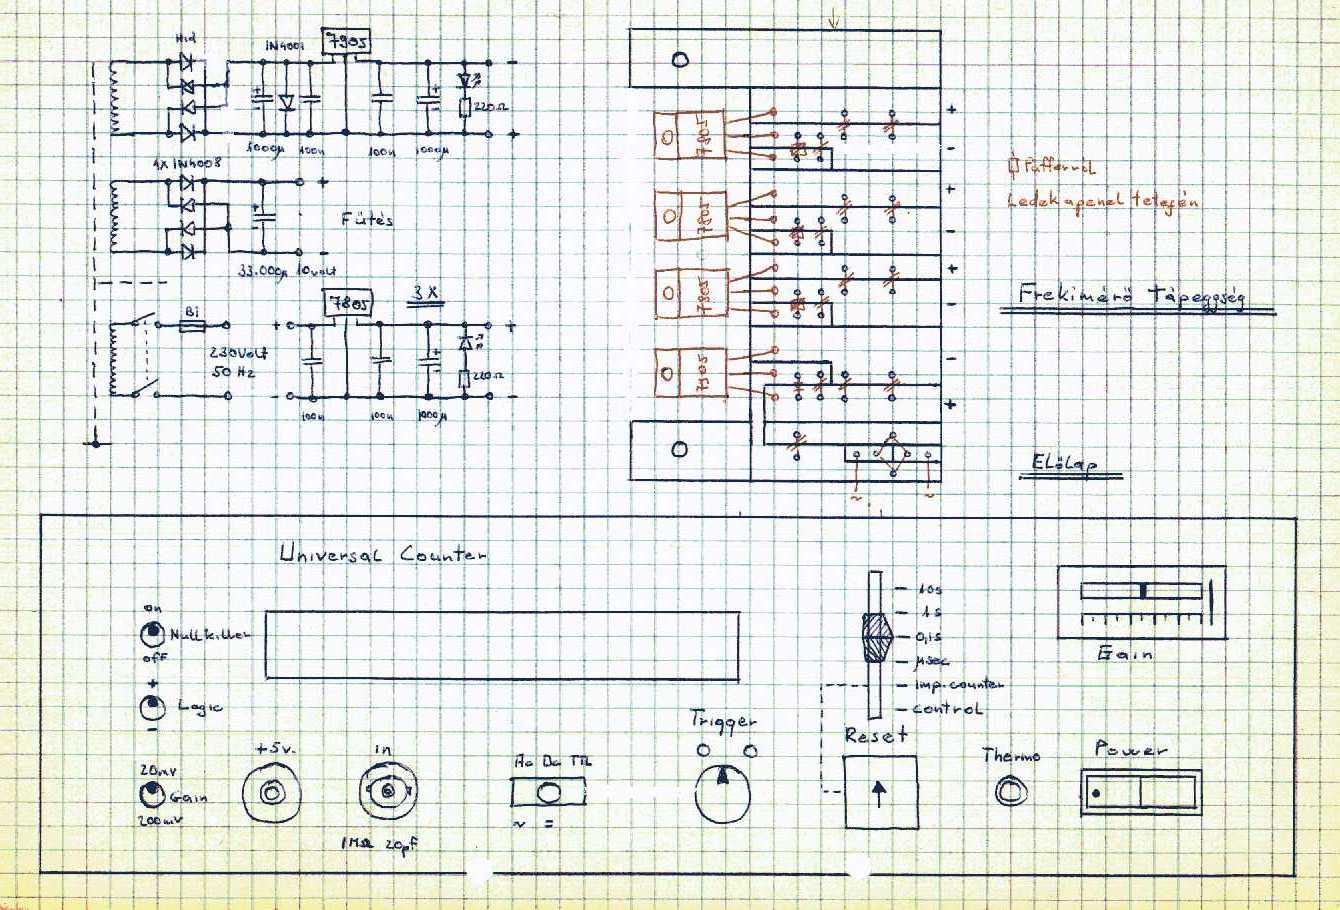 Hid
1N4001
7905
-
220Ω
+
1000µ
100n
100n
1000µ
4X 1N4008
+
Fűtés
-
33.000µ 10volt
7805
3X
Bi
+
+
230Volt
50 Hz
220Ω
-
-
100n
100n
1000µ
7805
+
-
7805
+
-
7805
+
-
7905
-
+
~
~
Ledek a panel tetején
Frekimérő Tápeggség
Előlap
Universal Counter
on
Nullkiller
off
+
Logic
-
20mV
Gain
200mV
+5v.
in
1MΩ 20pf
Ac Dc TTL
~ =
Trigger
10s
1s
0,1s
µsec
imp.counter
control
Reset
Gain
Thermo
Power